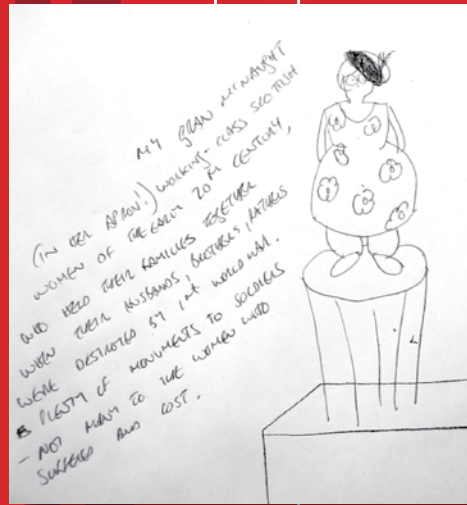 MY GRAN MCNAUGHT
(IN HER APRON!) WORKING-CLASS SCOTTISH
WOMEN OF THE EARLY 20TH CENTURY,
WHO HELD THEIR FAMILIES TOGETHER
WHEN THEIR HUSBANDS, BROTHERS, FATHERS
WERE DESTROYED BY 1ST WORLD WAR.
PLENTY OF MONUMENTS TO SOLDIERS
- NOT MANY TO THE WOMEN WHO
SUFFERED AND LOST.